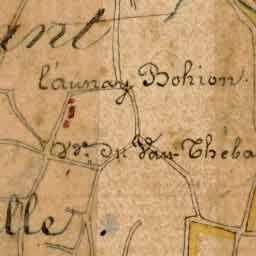 ent
l'aunay Bohion.
du Vau Theba
lle.